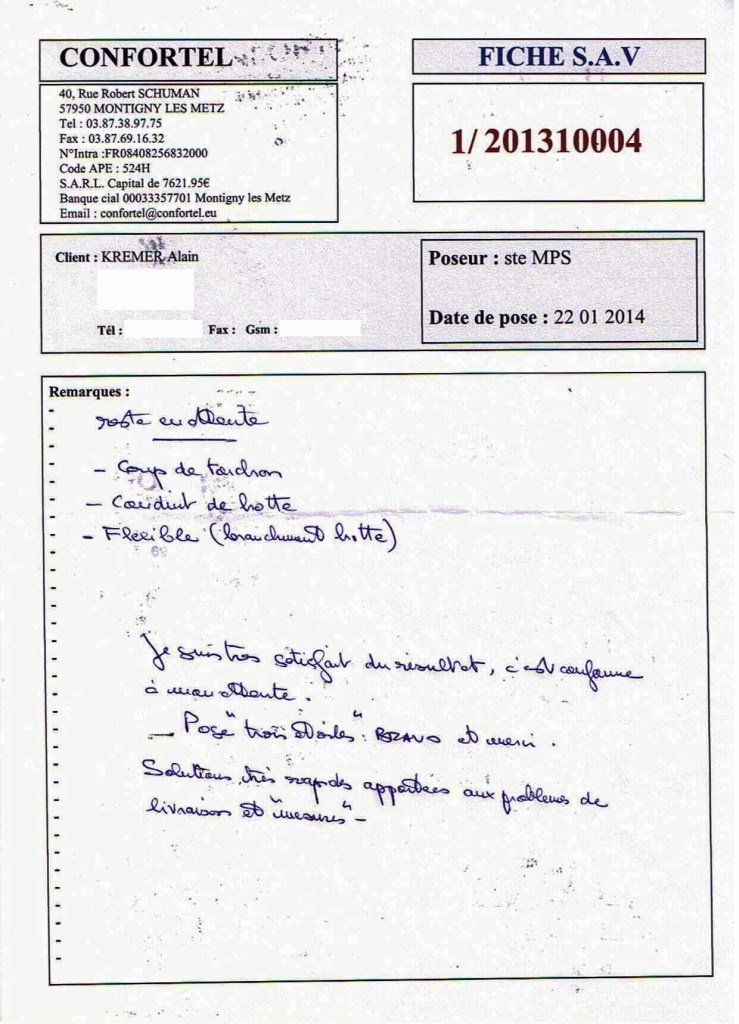 CONFORTEL
FICHE S.A.V
40, Rue Robert SCHUMAN
57950 MONTIGNY LES METZ
Tel : 03.87.38.97.75
Fax : 03.87.69.16.32
N°Intra :FR08408256832000
Code APE : 524H
S.A.R.L. Capital de 7621.95€
Banque cial 00033357701 Montigny les Metz
Email : confortel@confortel.eu
1/ 201310004
Client : KREMER Alain
Tél : Fax : Gsm :
Poseur : ste MPS
Date de pose : 22 01 2014
Remarques :
reste en attente
- Coup de torchon
- Conduit de hotte
- Flexible (branchement hotte)
Je suis très satisfait du résultat, c'est conforme
à mon attente.
- Pose "trois étoiles". BRAVO et merci.
Solutions très rapides apportées aux problèmes de
livraison et "mesures" -